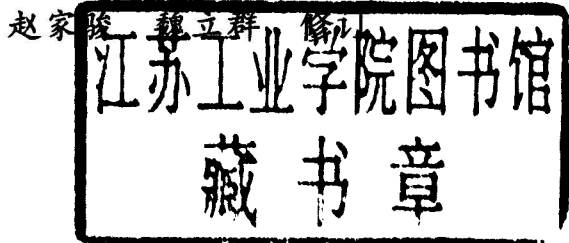 赵家骏 魏立群
江苏工业学院图书馆
藏书章